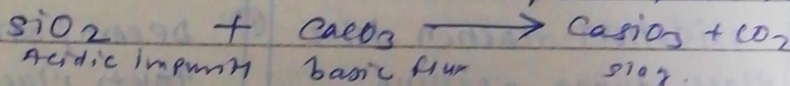 SiO2 + CaCO3 → CaSiO3 + CO2
Acidic impurity basic flux slag.